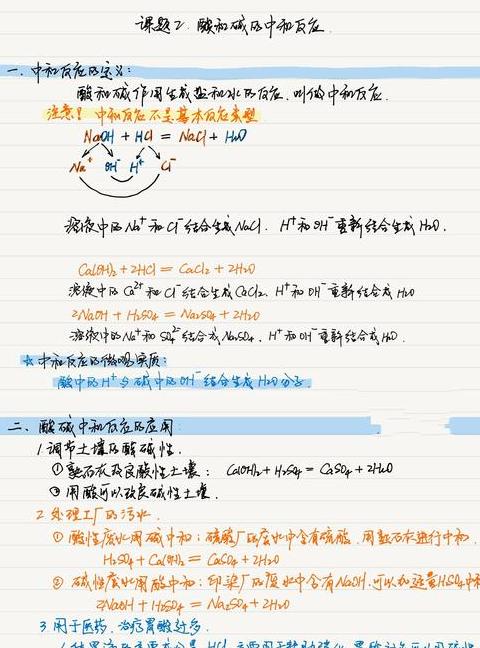 课题2. 酸和碱的中和反应.
一. 中和反应的定义:
酸和碱作用生成盐和水的反应. 叫做中和反应.
注意! 中和反应不是基本反应类型
NaOH + HCl = NaCl + H₂O
Na⁺ OH⁻ H⁺ Cl⁻
溶液中的Na⁺和Cl⁻结合生成NaCl. H⁺和OH⁻重新结合生成H₂O.
Ca(OH)₂ + 2HCl = CaCl₂ + 2H₂O
溶液中的Ca²⁺和Cl⁻结合生成CaCl₂. H⁺和OH⁻重新结合成H₂O
2NaOH + H₂SO₄ = Na₂SO₄ + 2H₂O
溶液中的Na⁺和SO₄²⁻结合成Na₂SO₄. H⁺和OH⁻重新结合成H₂O.
☆中和反应的微观实质:
酸中的H⁺与碱中的OH⁻结合生成H₂O分子.
二. 酸碱中和反应的应用:
1.调节土壤的酸碱性.
①熟石灰改良酸性土壤: Ca(OH)₂ + H₂SO₄ = CaSO₄ + 2H₂O
②用酸可以改良碱性土壤.
2.处理工厂的污水.
①酸性废水用碱中和: 硫酸厂的废水中含有硫酸. 用熟石灰进行中和.
H₂SO₄ + Ca(OH)₂ = CaSO₄ + 2H₂O
②碱性废水用酸中和: 印染厂的废水中含有NaOH. 可以加适量H₂SO₄中和
2NaOH + H₂SO₄ = Na₂SO₄ + 2H₂O
3.用于医药. 治疗胃酸过多.